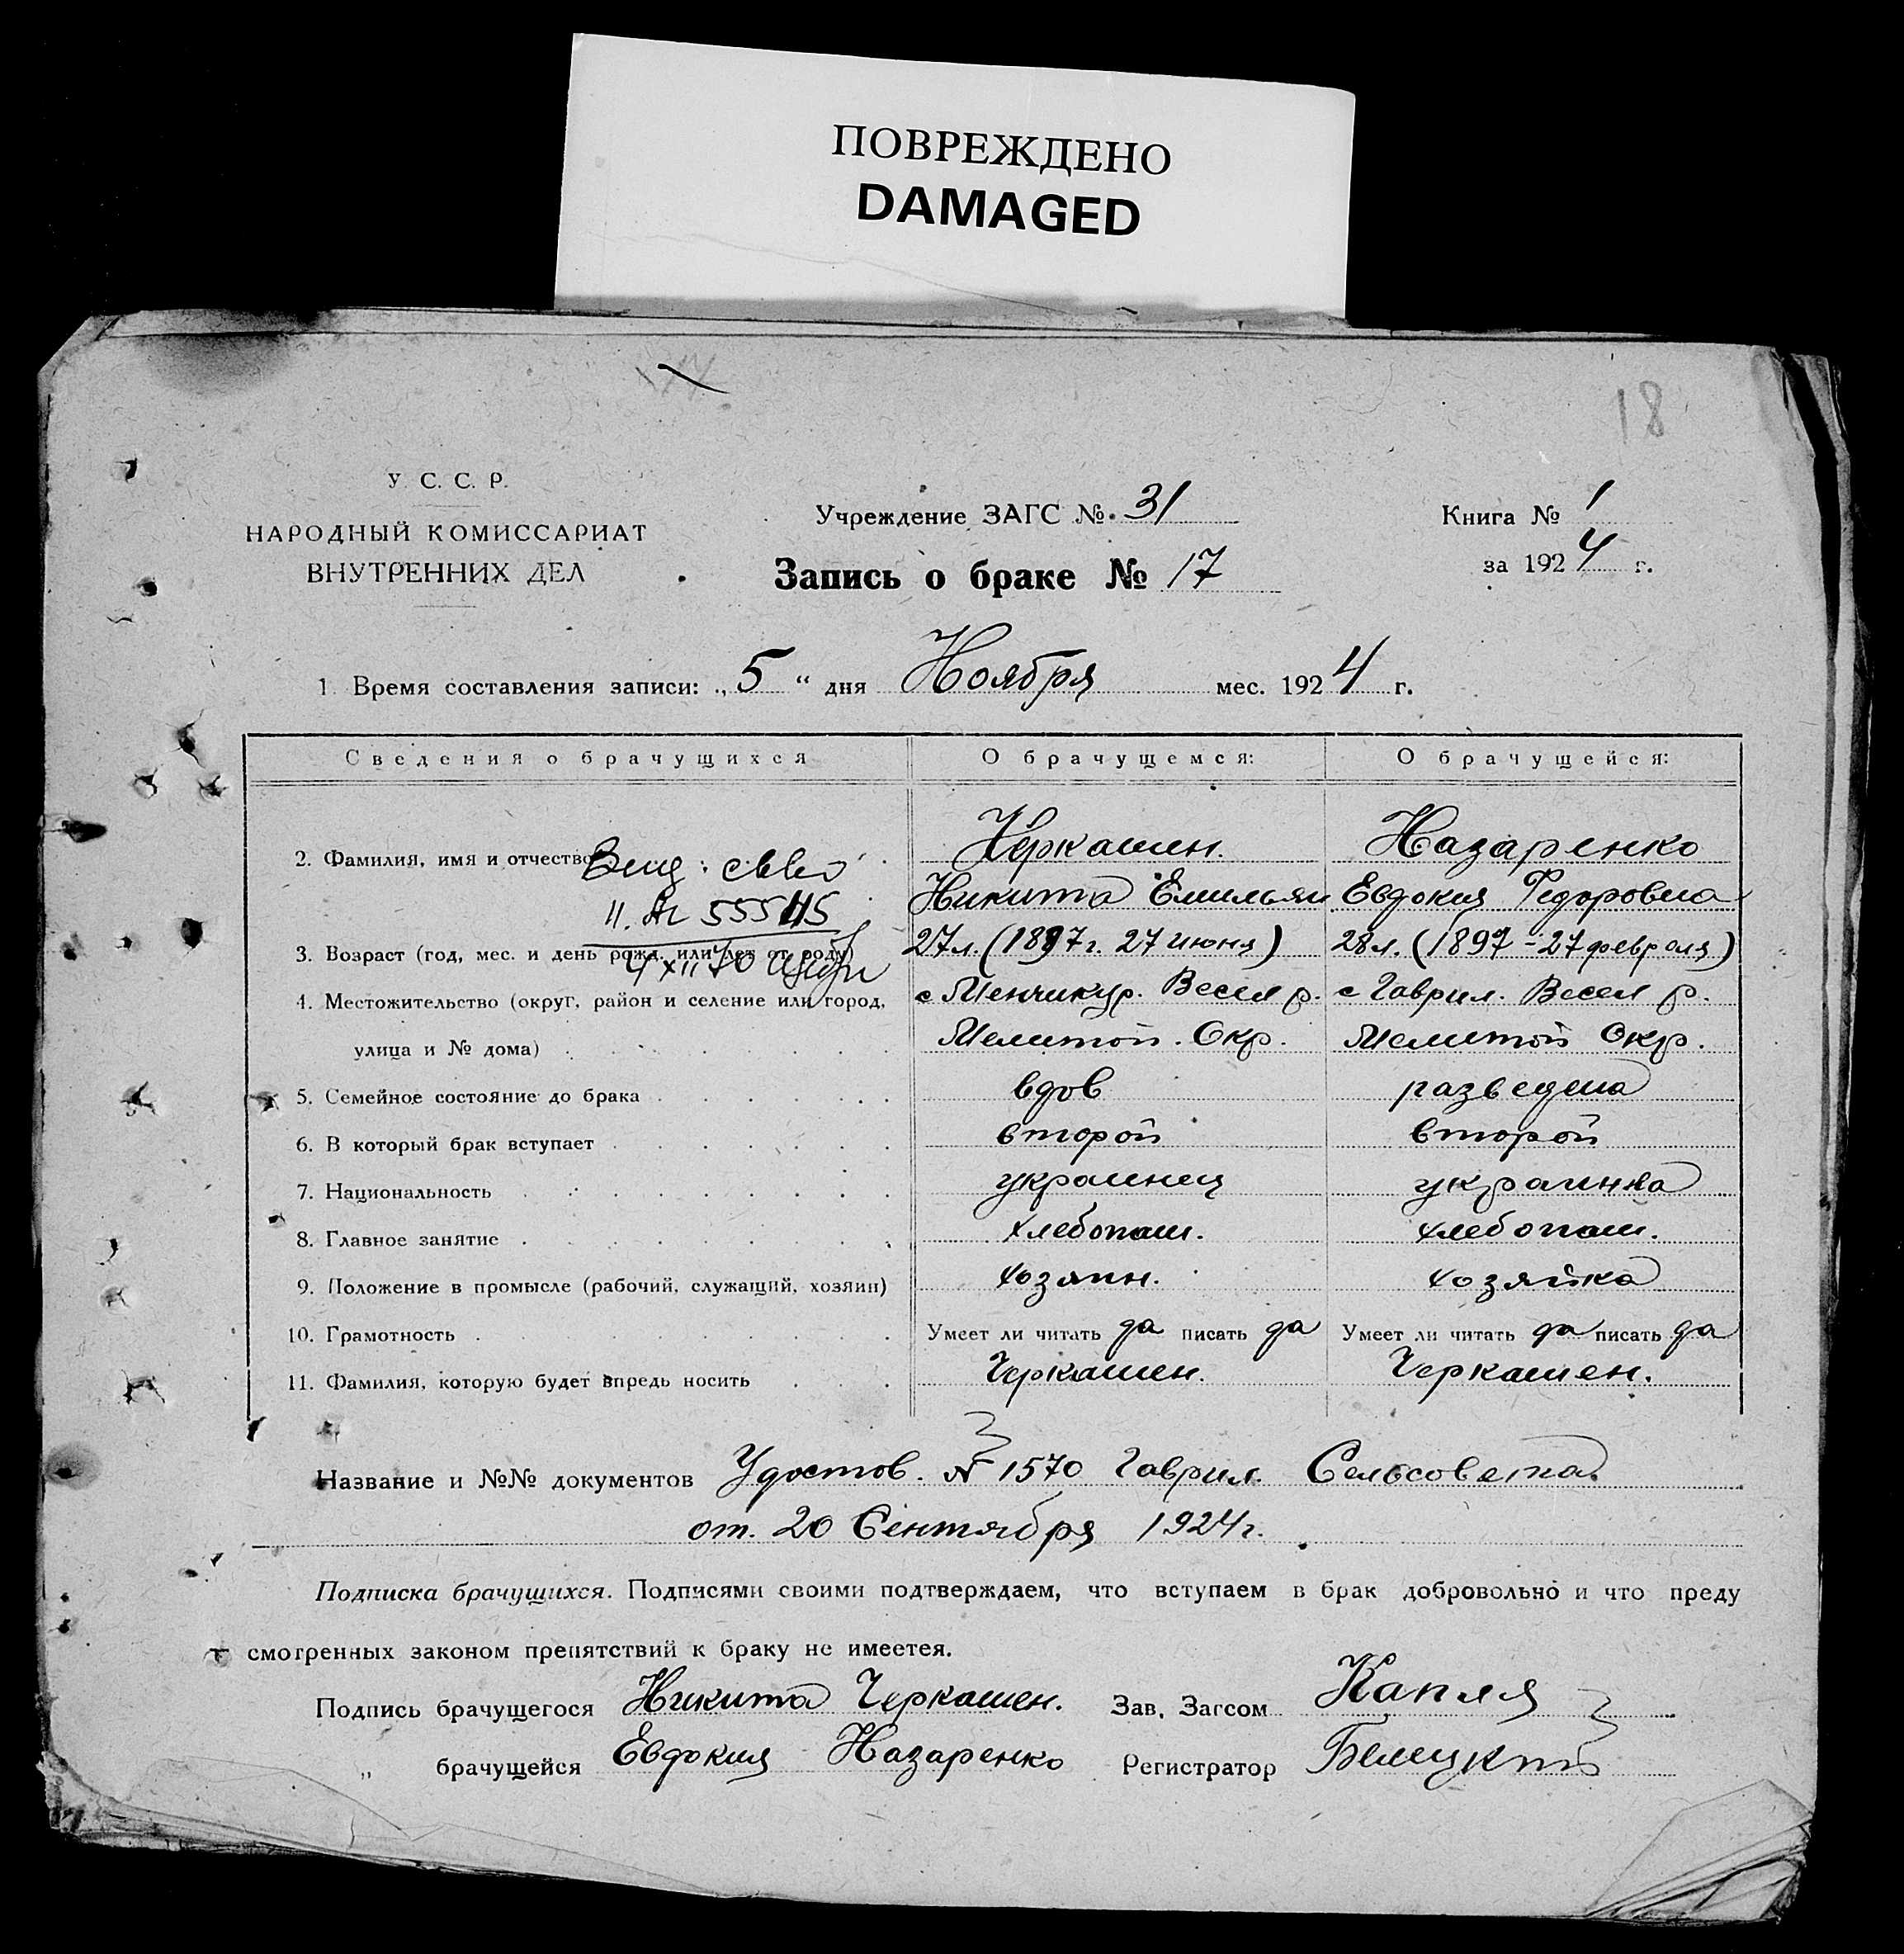 ПОВРЕЖДЕНО
DAMAGED
18
У. С. С. Р.
НАРОДНЫЙ КОМИССАРИАТ
ВНУТРЕННИХ ДЕЛ
Учреждение ЗАГС №. 31
Запись о браке № 17
Книга № 1
за 1924 г.
1 Время составления записи: „5“ дня Ноября мес. 1924 г.
Сведения о брачущихся О брачущемся: О брачущейся:
2. Фамилия, имя и отчество Черкашен. Назаренко
Никита Емильян Евдокия Федоровна
II. 55545
3. Возраст (год, мес. и день рожд. или лет от роду) 27л. (1897г. 27 июня) 28л. (1897-27 февраля)
4 XII 70
4. Местожительство (округ, район и селение или город, с Менчикур. Весел р. с Гаврил. Весел р.
улица и № дома) Мелитоп. Окр. Мелитоп Окр.
5. Семейное состояние до брака вдов разведена
6. В который брак вступает второй второй
7. Национальность украинец украинка
8. Главное занятие хлебопаш. хлебопаш.
9. Положение в промысле (рабочий, служащий, хозяин) хозяин. хозяйка
10. Грамотность Умеет ли читать да писать да Умеет ли читать да писать да
11. Фамилия, которую будет впредь носить Черкашен. Черкашен.
Название и №№ документов Удостов. № 1570 Гаврил. Сельсовета
от. 20 Сентября 1924г.
Подписка брачущихся. Подписями своими подтверждаем, что вступаем в брак добровольно и что преду
смотренных законом препятствий к браку не имеетея.
Подпись брачущегося Никита Черкашен. Зав. Загсом Капля
„ брачущейся Евдокия Назаренко Регистратор Белецкий